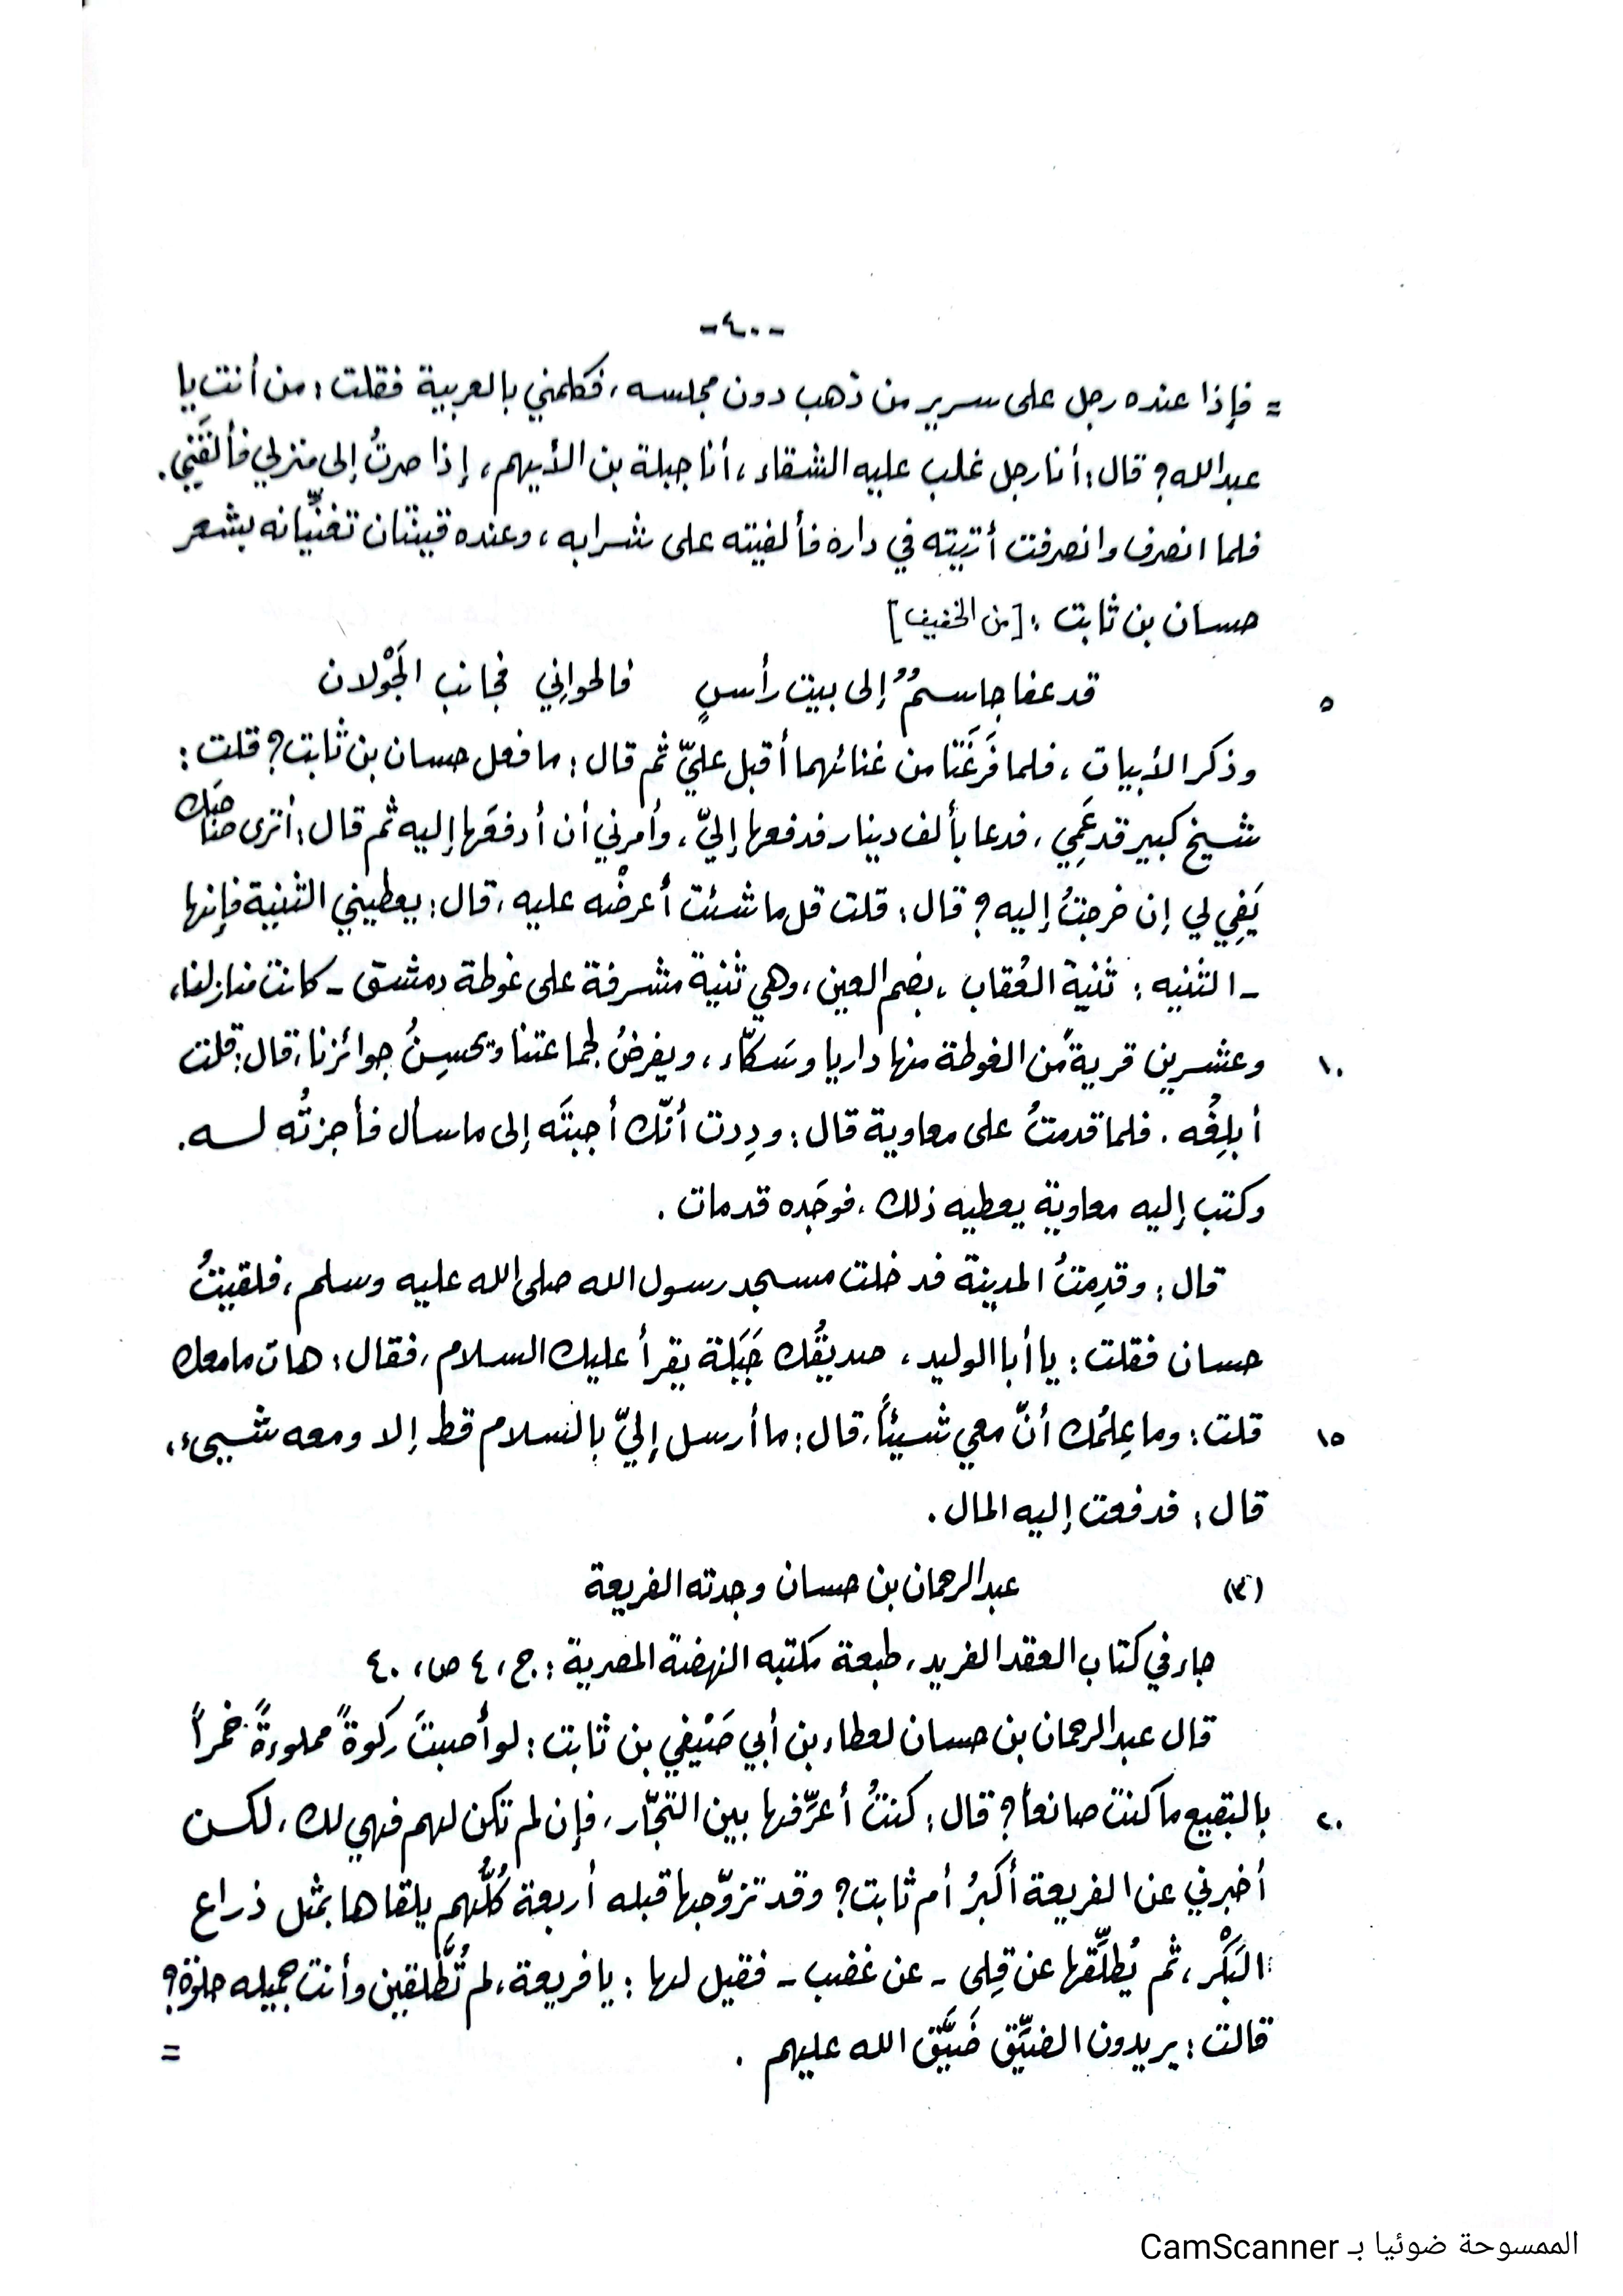 -٤٠-
= فإذا عنده رجل على سرير من ذهب دون مجلسه، فكلمني بالعربية فقلت: من أنت يا
عبدالله؟ قال: أنا رجل غلب عليه الشقاء، أنا جبلة بن الأيهم، إذا صرتُ إلى منزلي فألقَني.
فلما انصرف وانصرفت أتيته في داره فألفيته على شرابه، وعنده قينتان تغنِّيانه بشعر
حسان بن ثابت: [من الخفيف]
٥ قد عفا جاسمٌ إلى بيت رأسٍ فالحوانِي فجانب الجَوْلان
وذكر الأبيات، فلما فَرَغَتَا من غنائهما أقبل عليّ ثم قال: ما فعل حسان بن ثابت؟ قلت:
شيخ كبير قد عَمِي، فدعا بألف دينار فدفعها إليّ، وأمرني أن أدفعَها إليه ثم قال: أترى صاحبَك
يَفِي لي إن خرجتُ إليه؟ قال: قلت قل ما شئت أعرضْه عليه، قال: يعطيني الثنية فإنها
- الثنيه: ثنية العُقاب، بضم العين، وهي ثنية مشرفة على غوطة دمشق - كانت منازلنا،
١٠ وعشرين قريةً من الغوطة منها داريا وسَكّاء، ويفرضُ لجماعتنا ويحسِنُ جوائزنا، قال: قلت
أبلِغُه. فلما قدمتُ على معاوية قال: ودِدت أنّك أجبتَه إلى ما سأل فأجزتُه لـه.
وكتب إليه معاوية يعطيه ذلك، فوجَده قد مات.
قال: وقدِمتُ المدينة فدخلت مسجد رسول الله صلى الله عليه وسلم، فلقيتُ
حسان فقلت: يا أبا الوليد، صديقُك جَبَلة يقرأ عليك السلام، فقال: هات ما معك
١٥ قلت: وما عِلمُك أنّ معي شيئاً، قال: ما أرسل إليّ بالسلام قط إلا ومعه شيىء،
قال: فدفعت إليه المال.
(٣) عبدالرحمان بن حسان وجدته الفريعة
جاء في كتاب العقد الفريد، طبعة مكتبه النهضة المصرية: ج، ٤ ص، ٤٠
قال عبدالرحمان بن حسان لعطاء بن أبي صَيْفي بن ثابت: لو أصبتَ ركوةً مملوءةً خمراً
٢٠ بالبقيع ما كنت صانعاً؟ قال: كنتُ أعرِّفها بين التجّار، فإن لم تكن لهم فهي لك، لكن
أخبرني عن الفريعة أكبرُ أم ثابت؟ وقد تزوّجها قبله أربعة كُلُّهم يلقاها بمثل ذراع
البَكْر، ثم يُطلِّقها عن قِلى - عن غضب - فقيل لها: يا فريعة، لم تُطَّلقين وأنت جميله حلوة؟
قالت: يريدون الضيِّق ضَيَّق الله عليهم.
=
الممسوحة ضوئيا بـ CamScanner